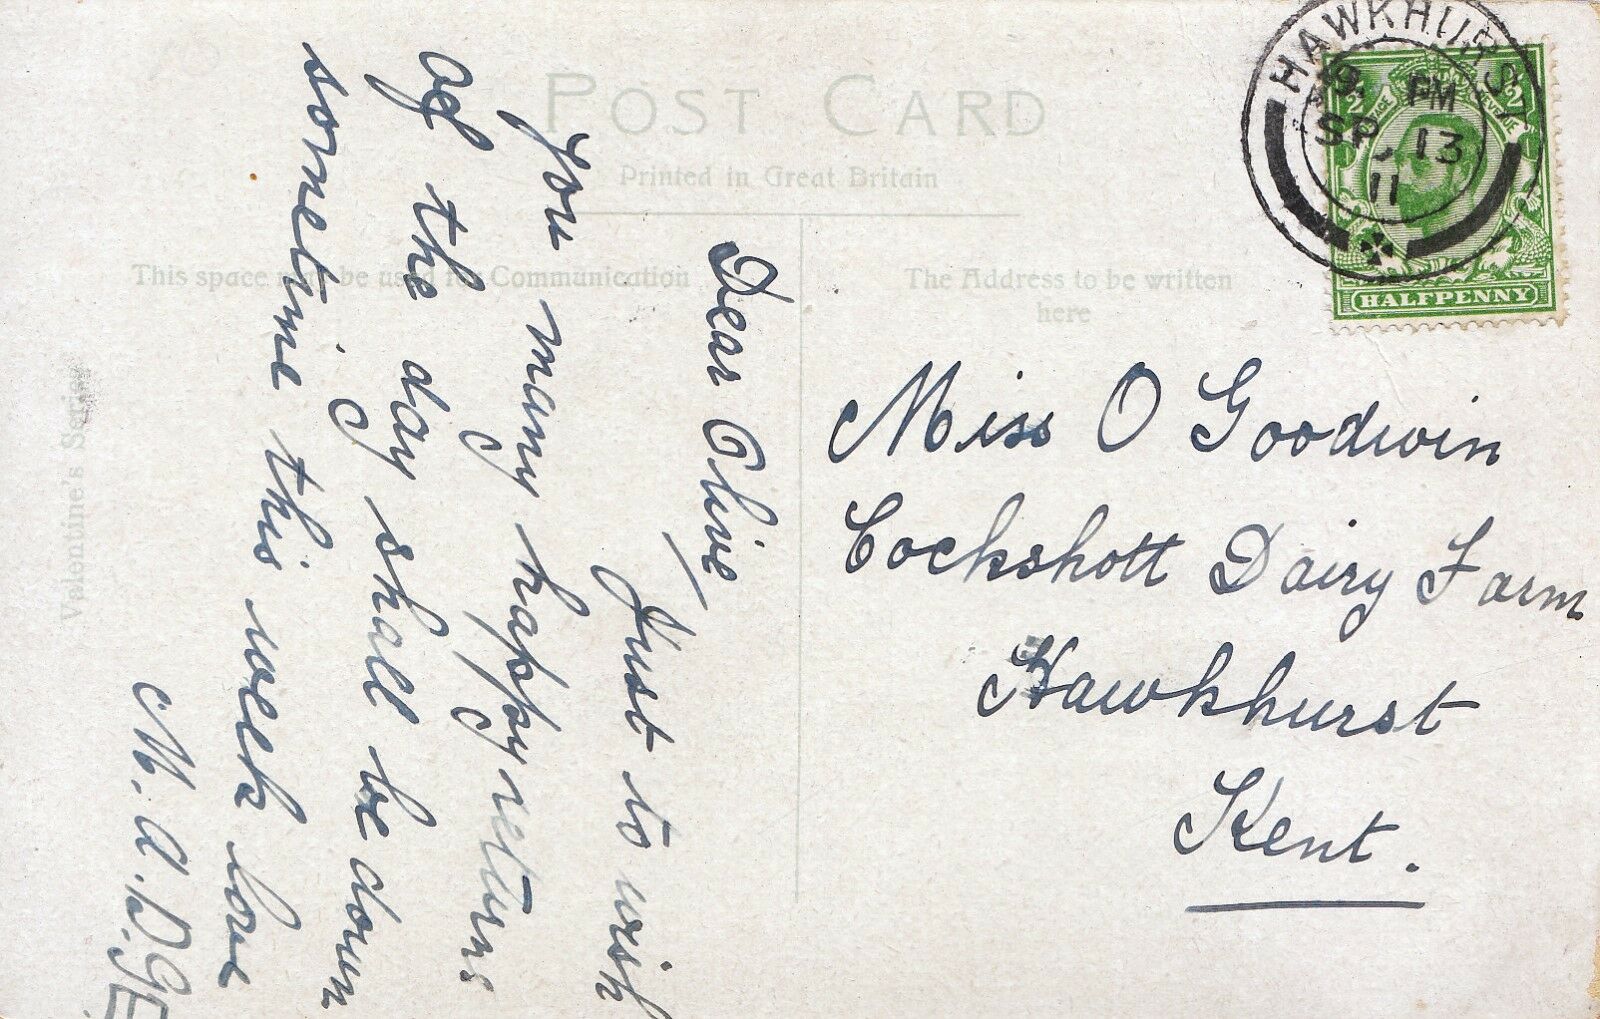 POST CARD
Printed in Great Britain
This space may be used for Communication
The Address to be written
here
Valentine's Series
HAWKHURST
9. PM
SP 13
11
HALFPENNY
Dear Olive,
Just to wish
you many happy returns
of the day shall be down
sometime this week love
M. A. D.
Miss O Goodwin
Cockshott Dairy Farm
Hawkhurst
Kent.